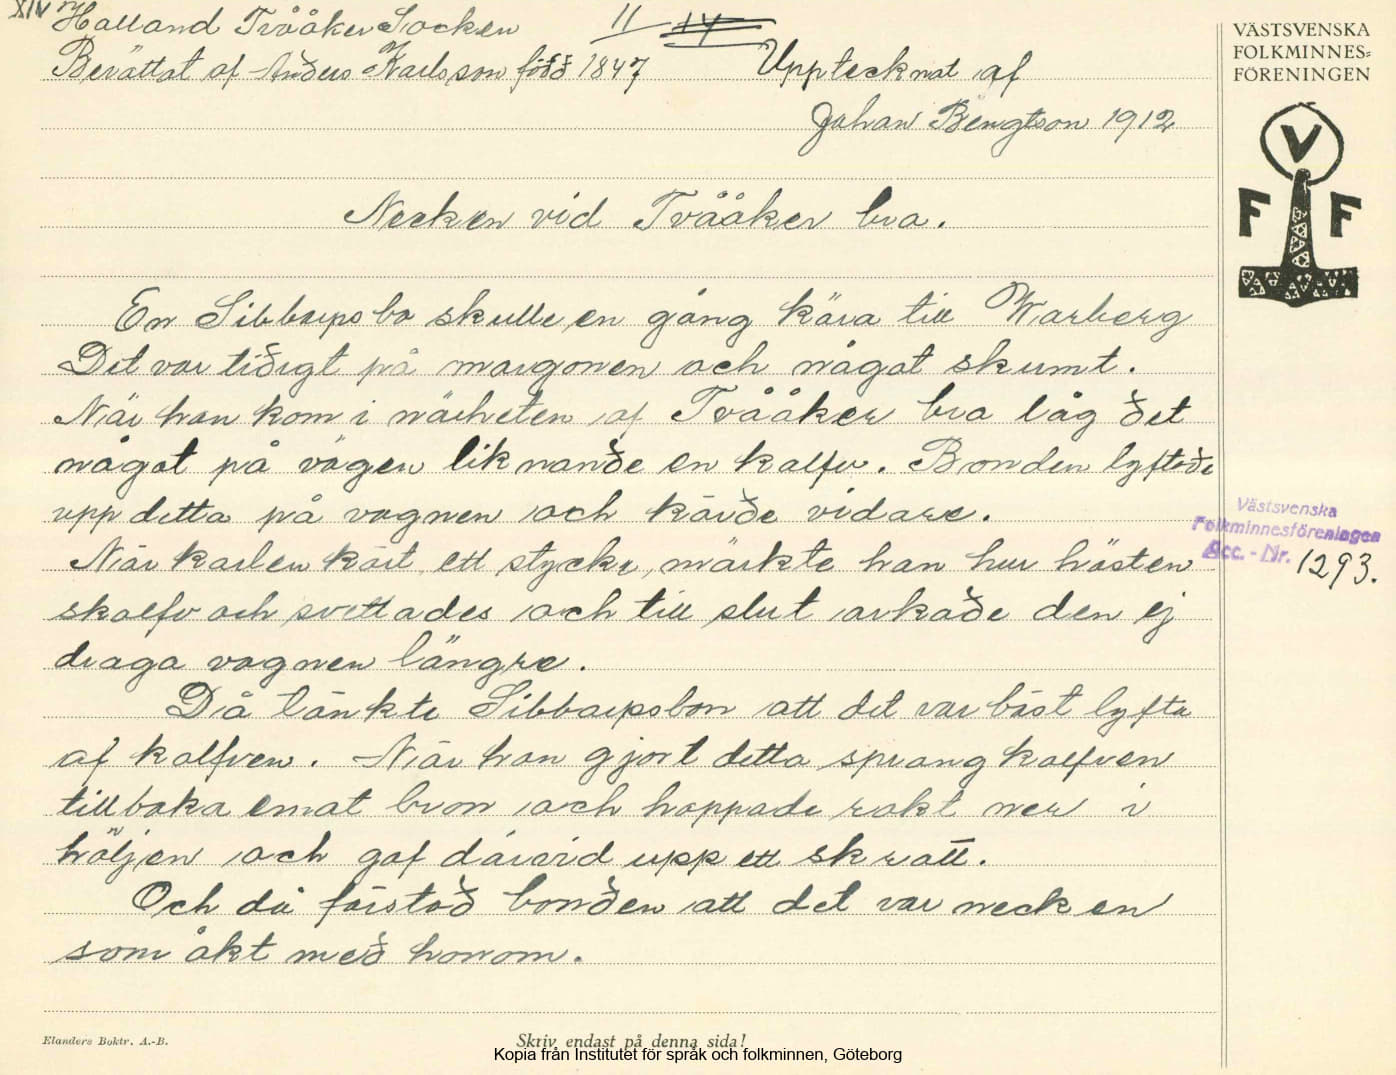 XIV Halland Tvååker Socken 11 14
Berättat af Anders Karlsson född 1847 Upptecknat af
Johan Bengtson 1912
Necken vid Tvååker bro.
En Sibbarpsbo skulle en gång köra till Warberg
Det var tidigt på morgonen och något skumt.
När han kom i närheten af Tvååker bro låg det
något på vägen liknande en kalfv. Bonden lyftade
upp detta på vagnen och körde vidare.
När karlen kört ett stycke, märkte han hur hästen
skalfv och svettades och till slut orkade den ej
draga vagnen längre.
Då tänkte Sibbarpsbon att det var bäst lyfta
af kalfven. När han gjort detta sprang kalfven
tillbaka emot bron och hoppade rakt ner i
höljen och gaf därvid upp ett skratt.
Och då förstod bonden att det var necken
som åkt med honom.
VÄSTSVENSKA
FOLKMINNES=
FÖRENINGEN
V
F F
Västsvenska
Folkminnesföreningen
Acc.-Nr. 1293.
Elanders Boktr. A.-B.
Skriv endast på denna sida!
Kopia från Institutet för språk och folkminnen, Göteborg